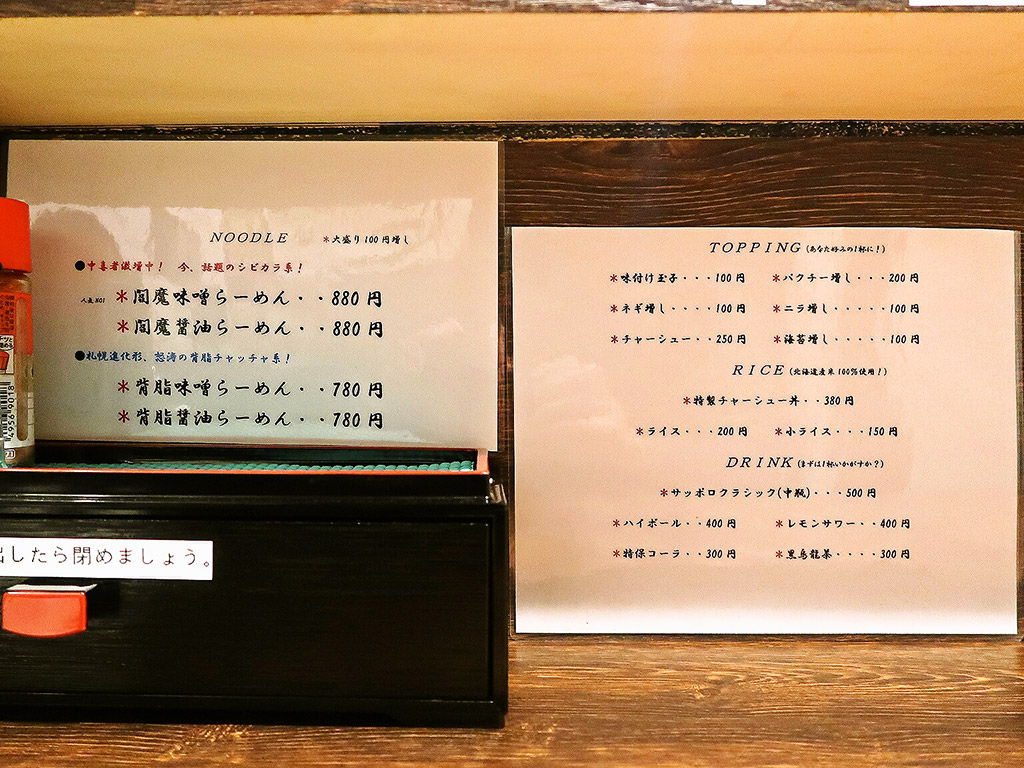 NOODLE *大盛り100円増し
●中毒者激増中! 今、話題のシビカラ系!
人気NO1 *閻魔味噌らーめん・・880円
*閻魔醤油らーめん・・880円
●札幌進化形、怒涛の背脂チャッチャ系!
*背脂味噌らーめん・・780円
*背脂醤油らーめん・・780円
出したら閉めましょう。
4956 9018
TOPPING(あなた好みの1杯に!)
*味付け玉子・・・100円 *パクチー増し・・・200円
*ネギ増し・・・・100円 *ニラ増し・・・・・100円
*チャーシュー・・250円 *海苔増し・・・・・100円
RICE(北海道産米100%使用!)
*特製チャーシュー丼・・380円
*ライス・・・200円 *小ライス・・・150円
DRINK(まずは1杯いかがすか?)
*サッポロクラシック(中瓶)・・・500円
*ハイボール・・400円 *レモンサワー・・400円
*特保コーラ・・300円 *黒烏龍茶・・・・300円